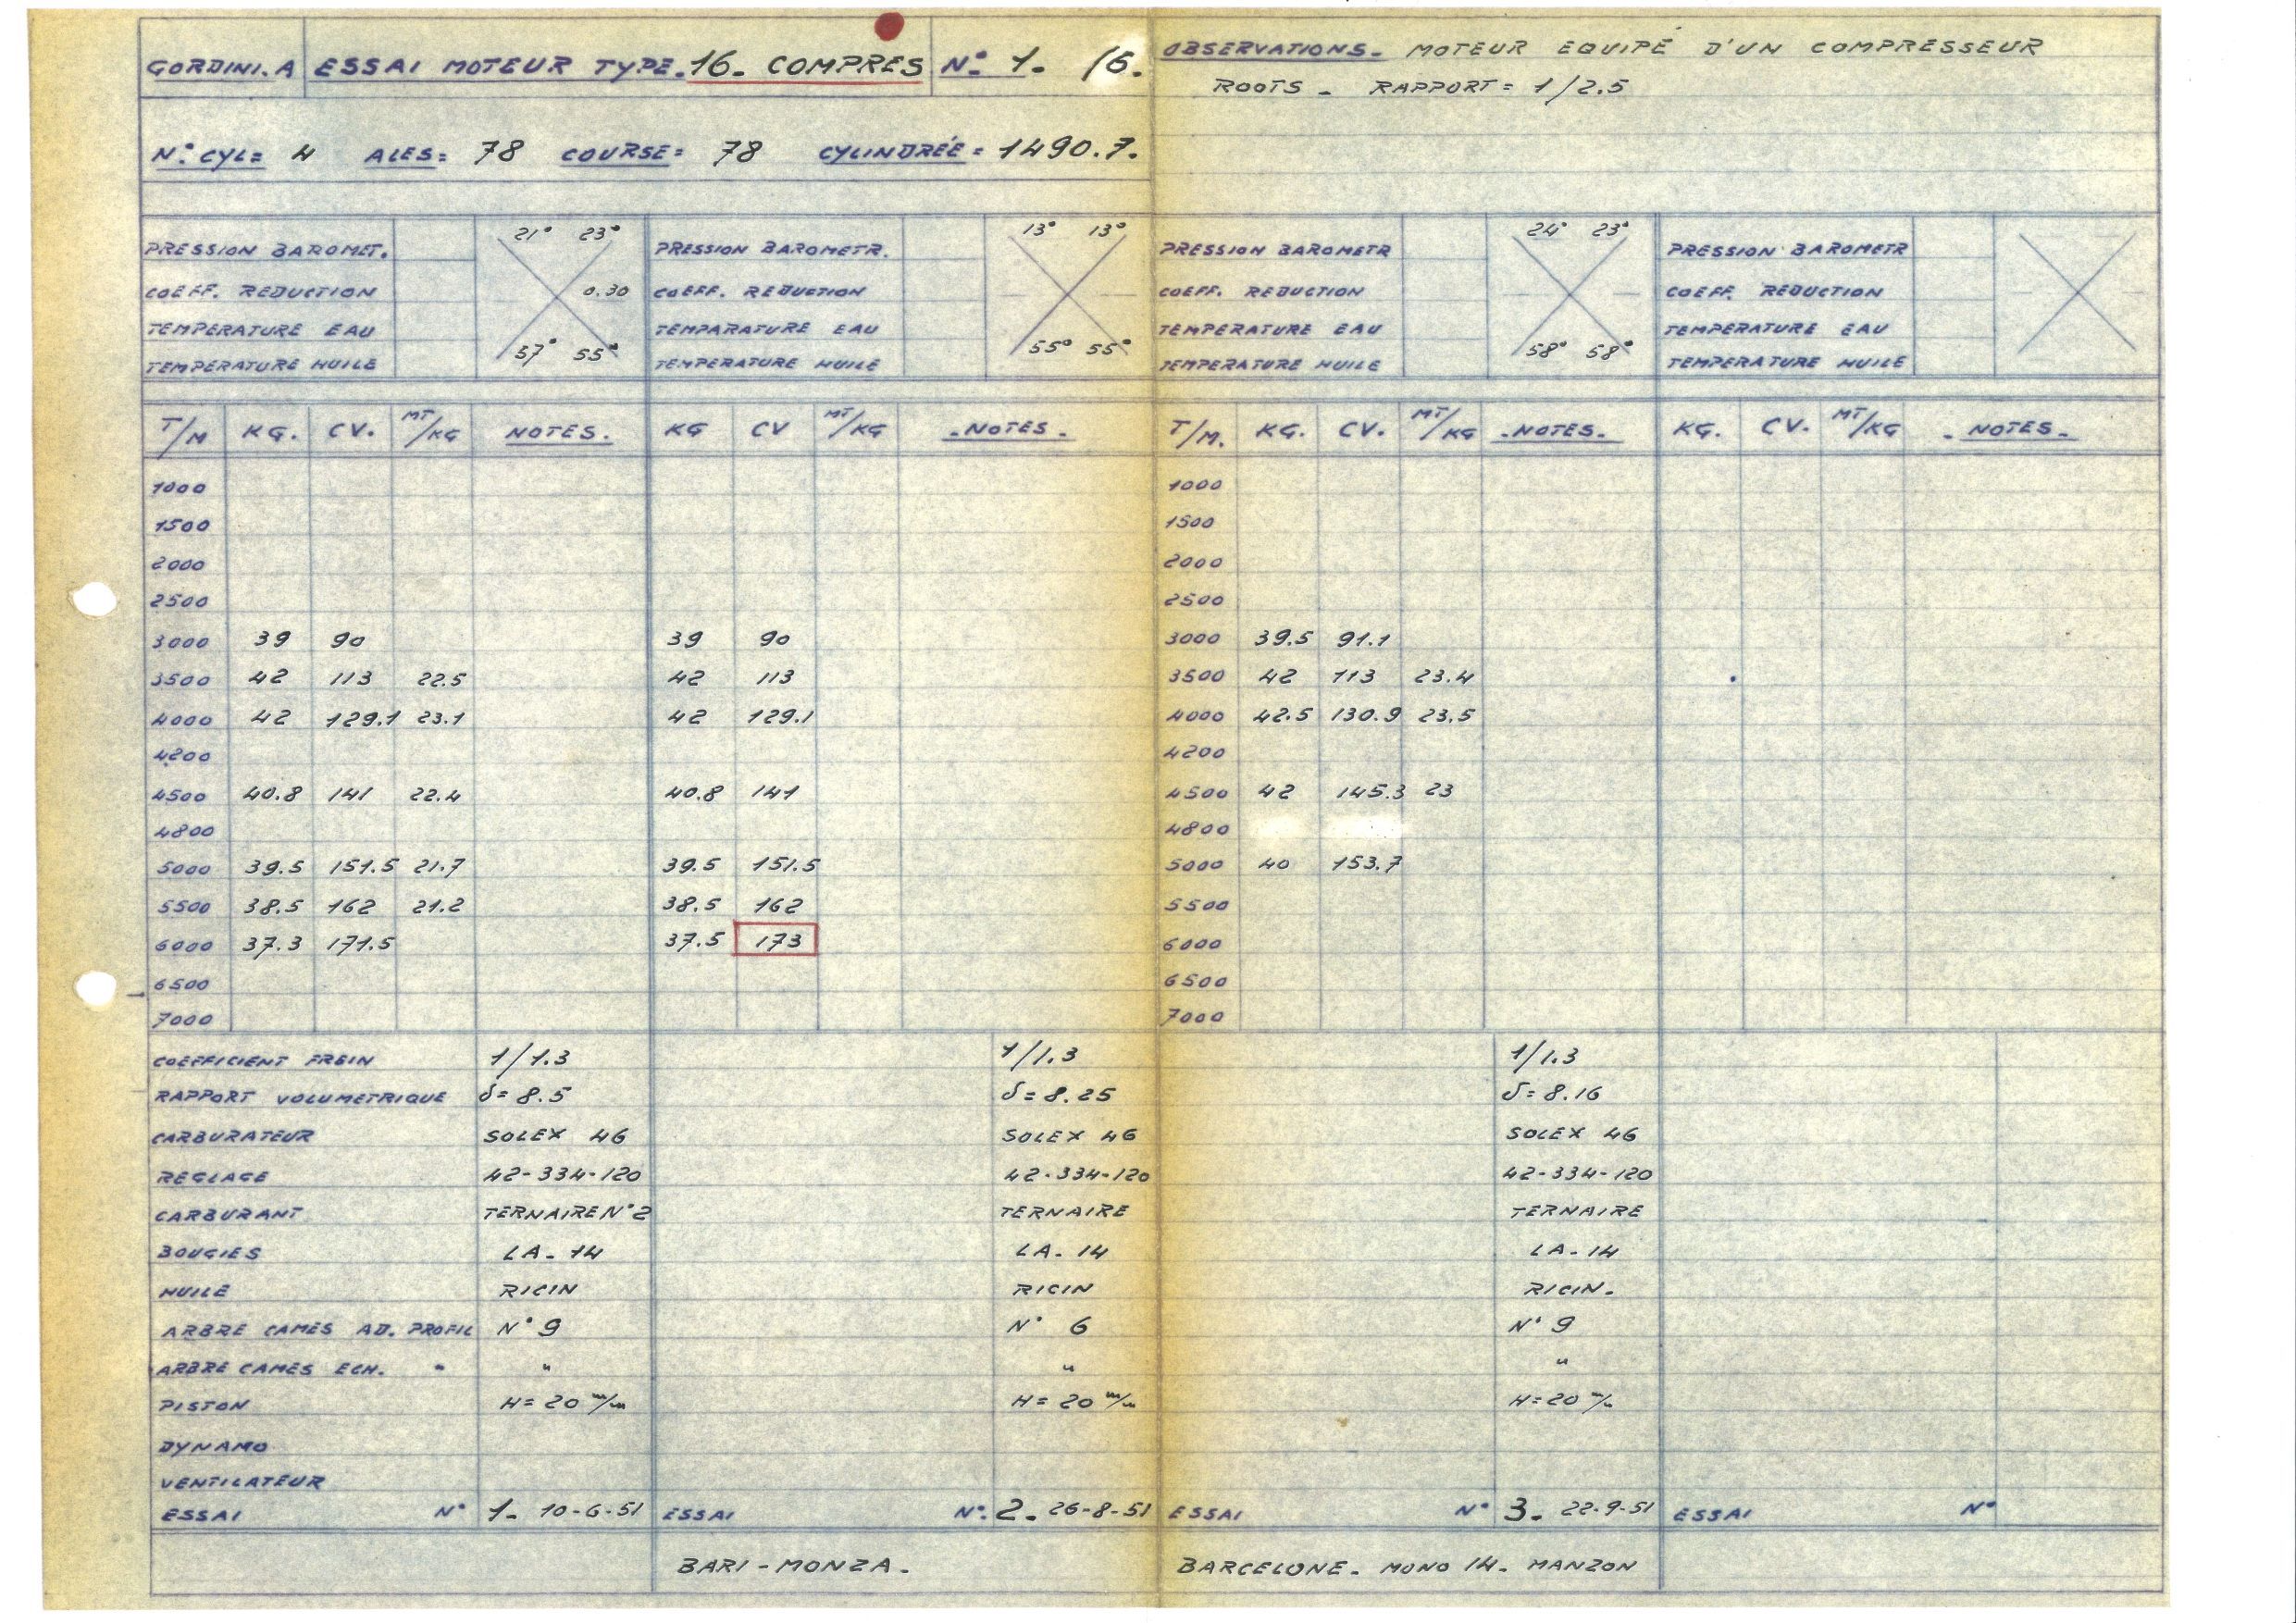 GORDINI.A ESSAI MOTEUR TYPE.16. COMPRES N°. 1. /6. OBSERVATIONS_ MOTEUR EQUIPÉ D'UN COMPRESSEUR
ROOTS _ RAPPORT = 1/2.5
N°. CYL = 4 ALES = 78 COURSE = 78 CYLINDRÉE = 1490.7.
21° 23° 13° 13° 24° 23°
PRESSION BAROMET. PRESSION BAROMETR. PRESSION BAROMETR PRESSION BAROMETR
COEFF. REDUCTION 0.30 COEFF. REDUCTION — COEFF. REDUCTION — COEFF. REDUCTION
TEMPERATURE EAU TEMPARATURE EAU TEMPERATURE EAU TEMPERATURE EAU
57° 55° 55° 55° 58° 58°
TEMPERATURE HUILE TEMPERATURE HUILE TEMPERATURE HUILE TEMPERATURE HUILE
T/M KG. CV. MT/KG NOTES. KG CV MT/KG _NOTES_ T/M. KG. CV. MT/KG _NOTES_ KG. CV. MT/KG _NOTES_
1000 1000
1500 1500
2000 2000
2500 2500
3000 39 90 39 90 3000 39.5 91.1
3500 42 113 22.5 42 113 3500 42 113 23.4
4000 42 129.1 23.1 42 129.1 4000 42.5 130.9 23.5
4200 4200
4500 40.8 141 22.4 40.8 141 4500 42 145.3 23
4800 4800
5000 39.5 151.5 21.7 39.5 151.5 5000 40 153.7
5500 38.5 162 21.2 38.5 162 5500
6000 37.3 171.5 37.5 173 6000
6500 6500
7000 7000
COEFFICIENT FREIN 1/1.3 1/1.3 1/1.3
RAPPORT VOLUMETRIQUE δ= 8.5 δ= 8.25 δ= 8.16
CARBURATEUR SOLEX 46 SOLEX 46 SOLEX 46
REGLAGE 42-334-120 42-334-120 42-334-120
CARBURANT TERNAIRE N°2 TERNAIRE TERNAIRE
BOUGIES LA-14 LA-14 LA-14
HUILE RICIN RICIN RICIN.
ARBRE CAMES AD. PROFIL N° 9 N° 6 N° 9
ARBRE CAMES ECH. " " " "
PISTON H= 20 m/m H= 20 m/m H=20 m/m
DYNAMO
VENTILATEUR
ESSAI N° 1. 10-6-51 ESSAI N°. 2. 26-8-51 ESSAI N° 3. 22-9-51 ESSAI N°
BARI - MONZA. BARCELONE. MONO 14. MANZON